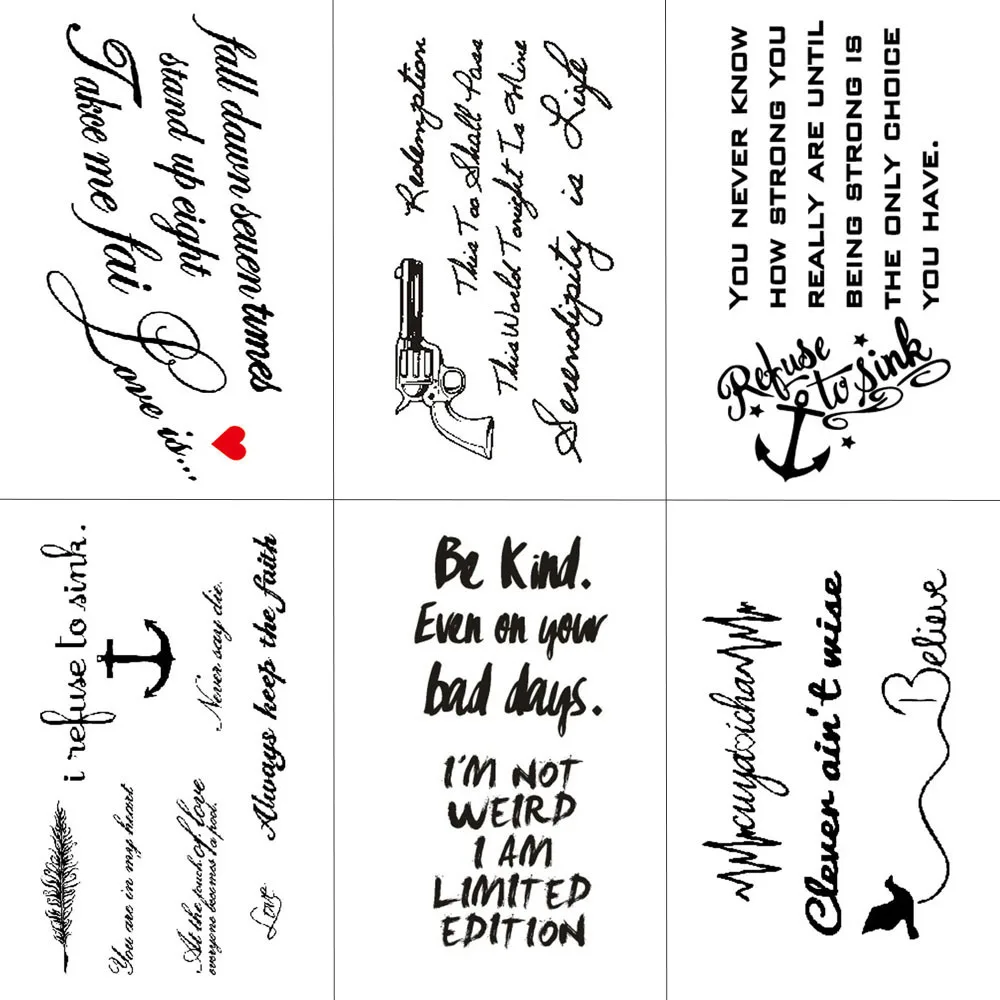 fall dawn seven times
stand up eight
Take me fai
Love is...
Redemption
This Too Shall Pass
This World Tonight Is Mine
Serendipity is Life
YOU NEVER KNOW
HOW STRONG YOU
REALLY ARE UNTIL
BEING STRONG IS
THE ONLY CHOICE
YOU HAVE.
Refuse
to sink
i refuse to sink.
You are in my heart
Never say die.
At the touch of love
everyone becomes a poet.
Always keep the faith
Love
Be Kind.
Even on your
bad days.
I'M NOT
WEIRD
I AM
LIMITED
EDITION
Clever ain't wise
Believe